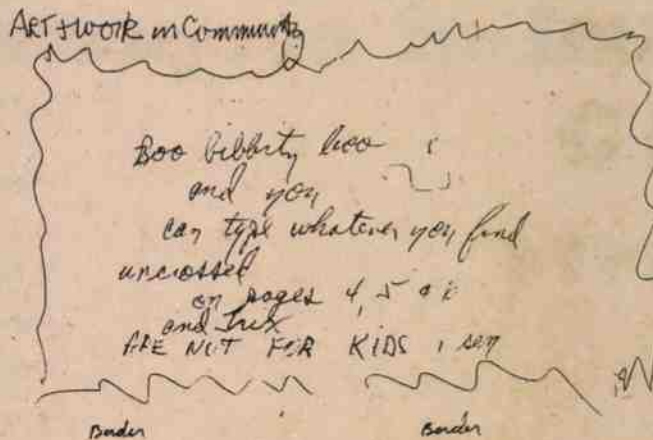 ART+WORK in Community
Boo bibbity boo
and you
can type whatever you find
uncrossed
on pages 4, 5 &
and Trix
ARE NOT FOR KIDS, son
Border Border